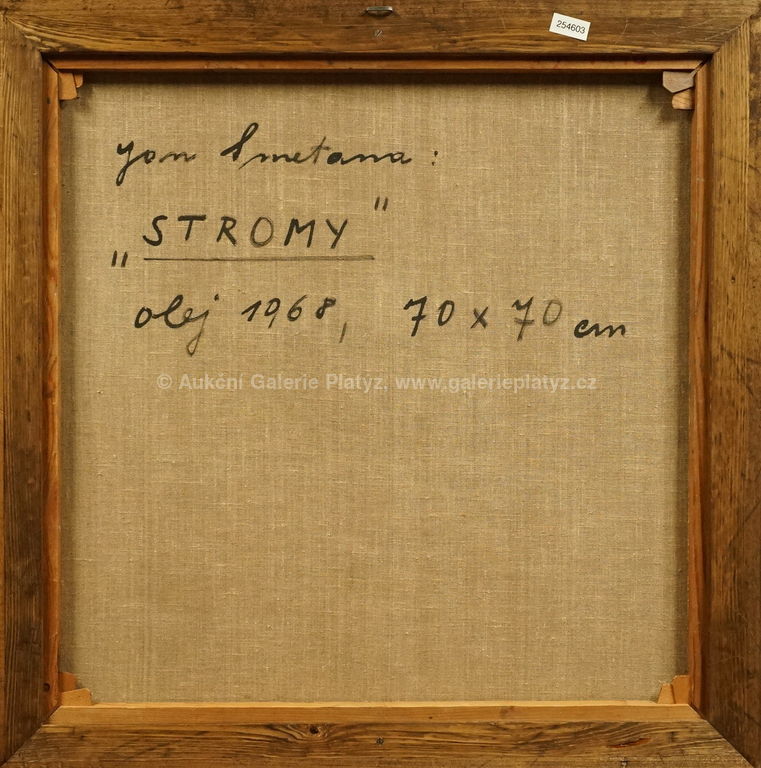 254603
Jan Smetana:
„STROMY"
olej 1968, 70 x 70 cm
© Aukční Galerie Platyz, www.galerieplatyz.cz